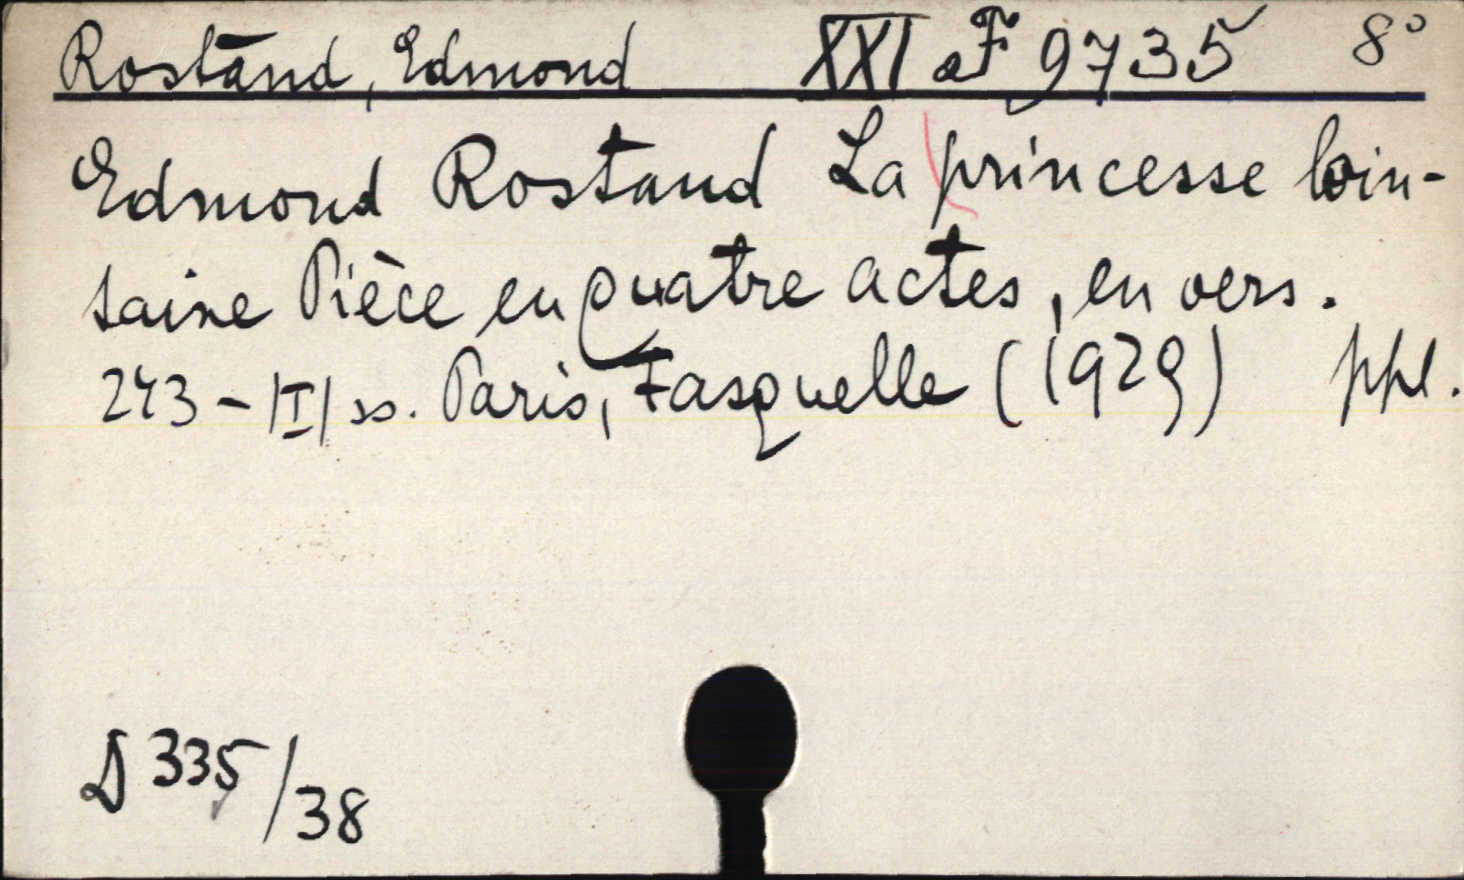 Rostand, Edmond XXI aF 9735 8°
Edmond Rostand La princesse loin-
taine Pièce en quatre actes, en vers.
243 - |I| ss. Paris, Fasquelle (1929) ppl.
D 335/38